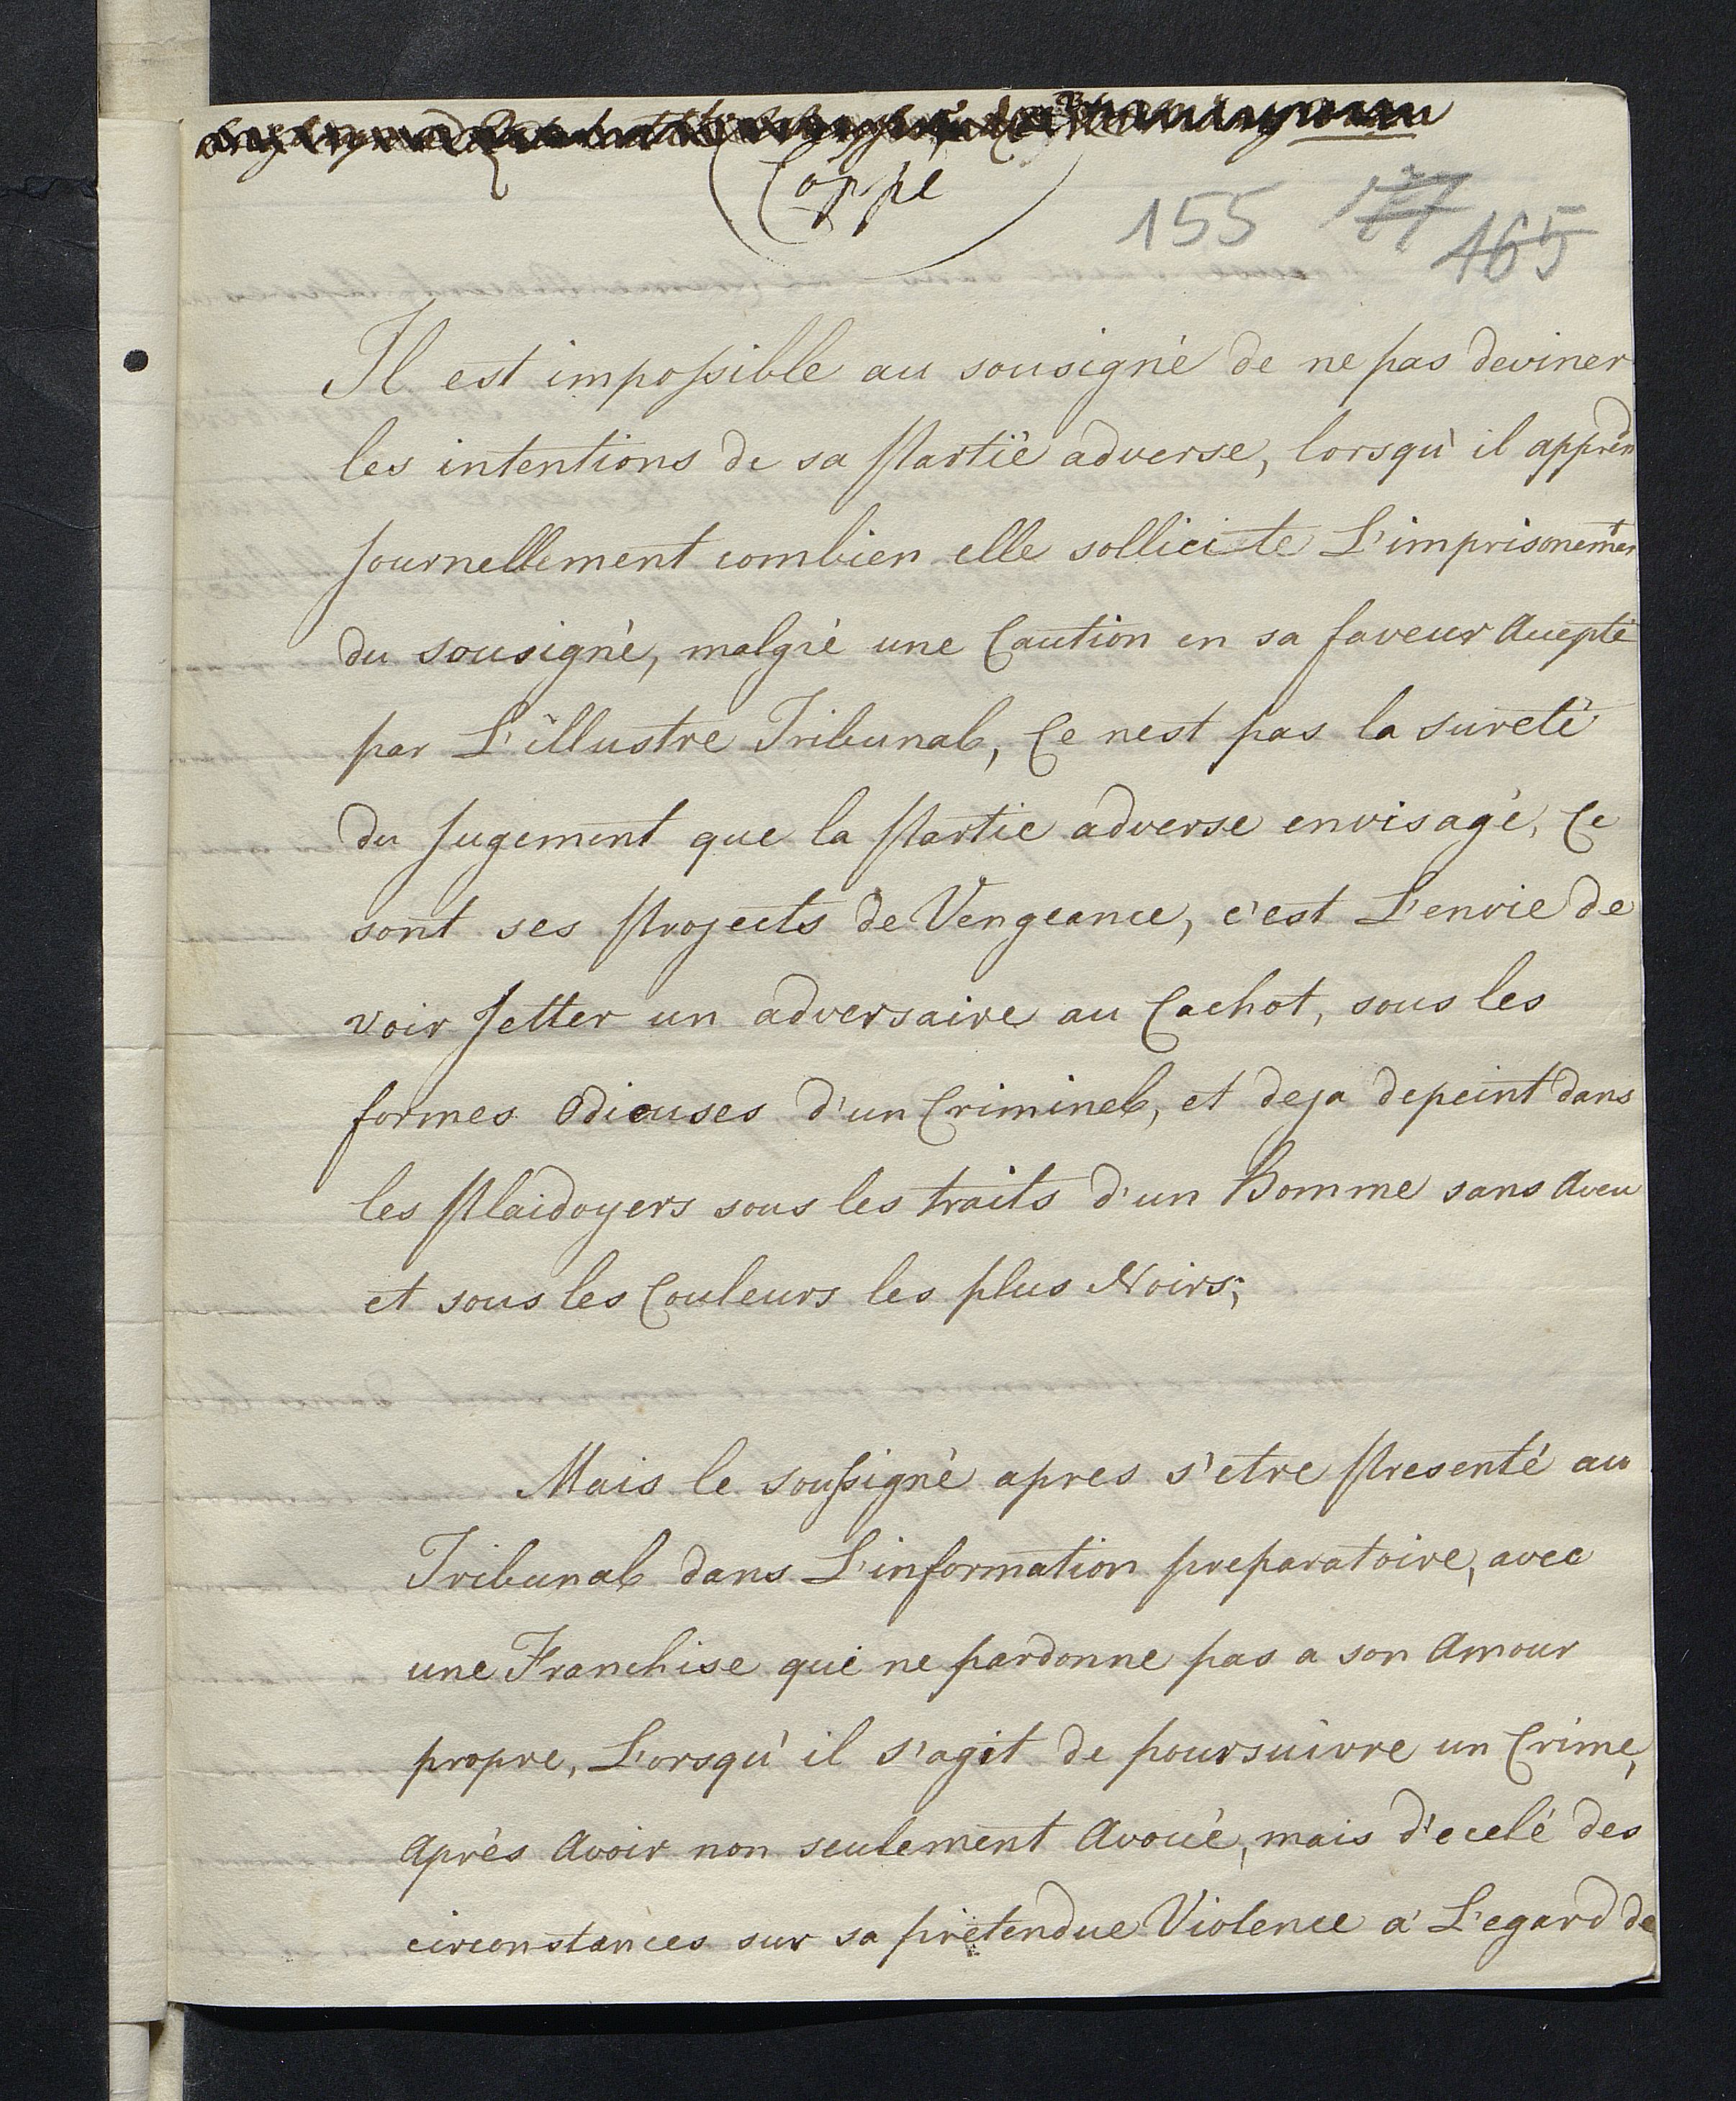 Coppe
155 177 165
Il est impossible au sousigné de ne pas deviner
les intentions de sa Partië adverse, lorsqu'il apprend
Journellement combien elle sollicite L'imprisonement
du sousigné, malgré une Caution en sa faveur Accepté
par L'illustre Tribunal, Ce nest pas la sureté
du Jugement que la Partie adverse envisagé, Ce
sont ses Projects de Vengeance, c'est L'envie de
voir Jetter un adversaire au Cachot, sous les
formes Odieuses d'un Criminel, et deja depeint dans
les Plaidoyers sous les traits d'un Homme sans Aveu
et sous les Couleurs les plus Noirs;
Mais le soussigné apres s'etre Presenté au
Tribunal dans L'information preparatoire, avec
une Franchise qui ne pardonne pas a son Amour
propre, Lorsqu'il s'agit de poursuivre un Crime,
Après Avoir non seulement Avoué, mais d'ecelé des
circonstances sur sa prétendue Violence a' L'egard de